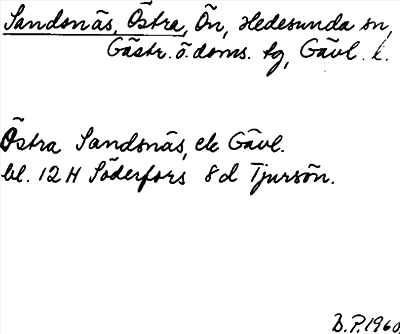 Sandsnäs, Östra, Ön, Hedesunda sn,
Gästr. ö. doms. tg, Gävl. l.
Östra Sandsnäs, ek Gävl.
bl. 12 H Söderfors 8d Tjursön.
B.P. 1960.